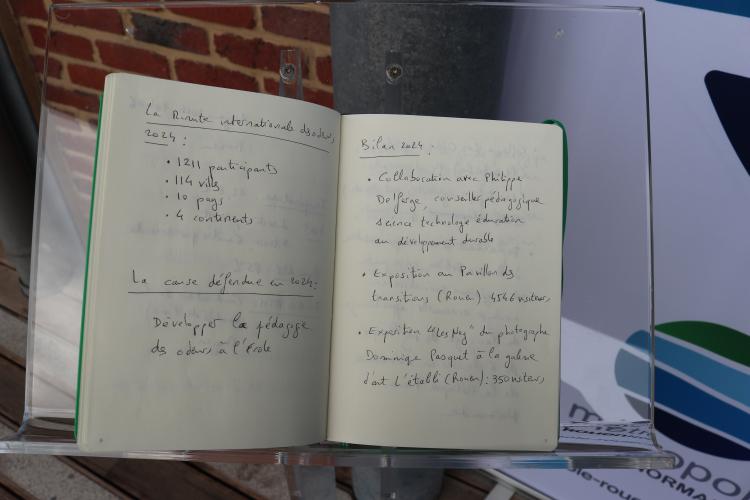 La Minute internationale des odeurs
2024 :
• 1211 participants
• 114 villes
• 10 pays
• 4 continents
La cause défendue en 2024 :
Développer la pédagogie
des odeurs à l'école
Bilan 2024 :
• Collaboration avec Philippe
Delfarge, conseiller pédagogique
science technologie éducation
au développement durable
• Exposition au Pavillon des
transitions (Rouen) 4546 visiteurs
• Exposition "Les Nez" du photographe
Dominique Pasquet à la galerie
d'art L'établi (Rouen) : 350 visiteurs
ORMA